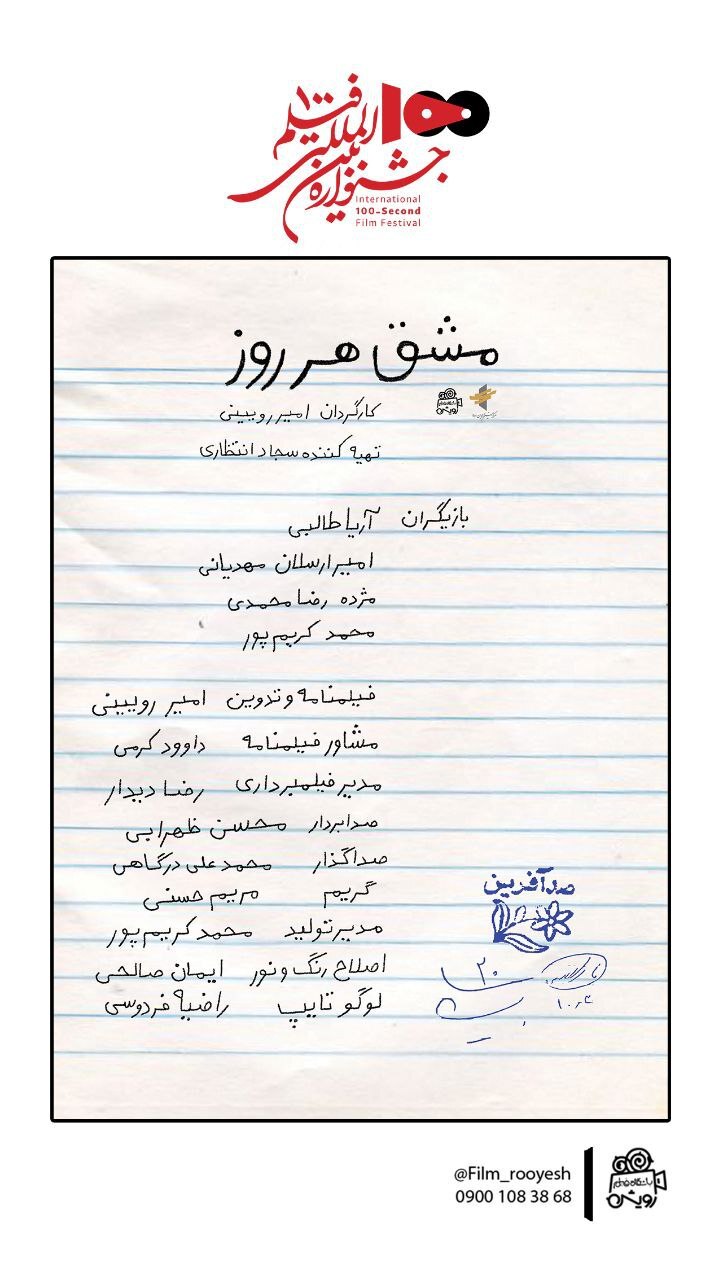 جشنواره بین‌المللی فیلم ۱۰۰
International
100-Second
Film Festival
مشق هر روز
کارگردان امیر رویینی
تهیه کننده سجاد انتظاری
بازیگران آریا طالبی
امیر ارسلان مهدیانی
مژده رضا محمدی
محمد کریم پور
فیلمنامه و تدوین امیر رویینی
مشاور فیلمنامه داوود کرمی
مدیر فیلمبرداری رضا دیدار
صدابردار محسن ظهرابی
صداگذار محمد علی درگاهی
گریم مریم حسنی
مدیر تولید محمد کریم پور
اصلاح رنگ و نور ایمان صالحی
لوگو تایپ راضیه فردوسی
صد آفرین
۲۰
@Film_rooyesh
0900 108 38 68
باشگاه فیلم
رویش